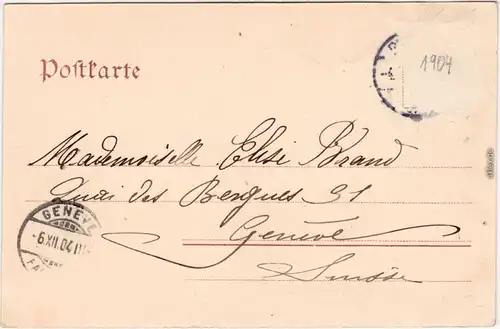 Postkarte
1904
Mademoiselle Elise Brand
Quai des Bergues 31
Genève
Suisse
GENÈVE
-6.XII.04